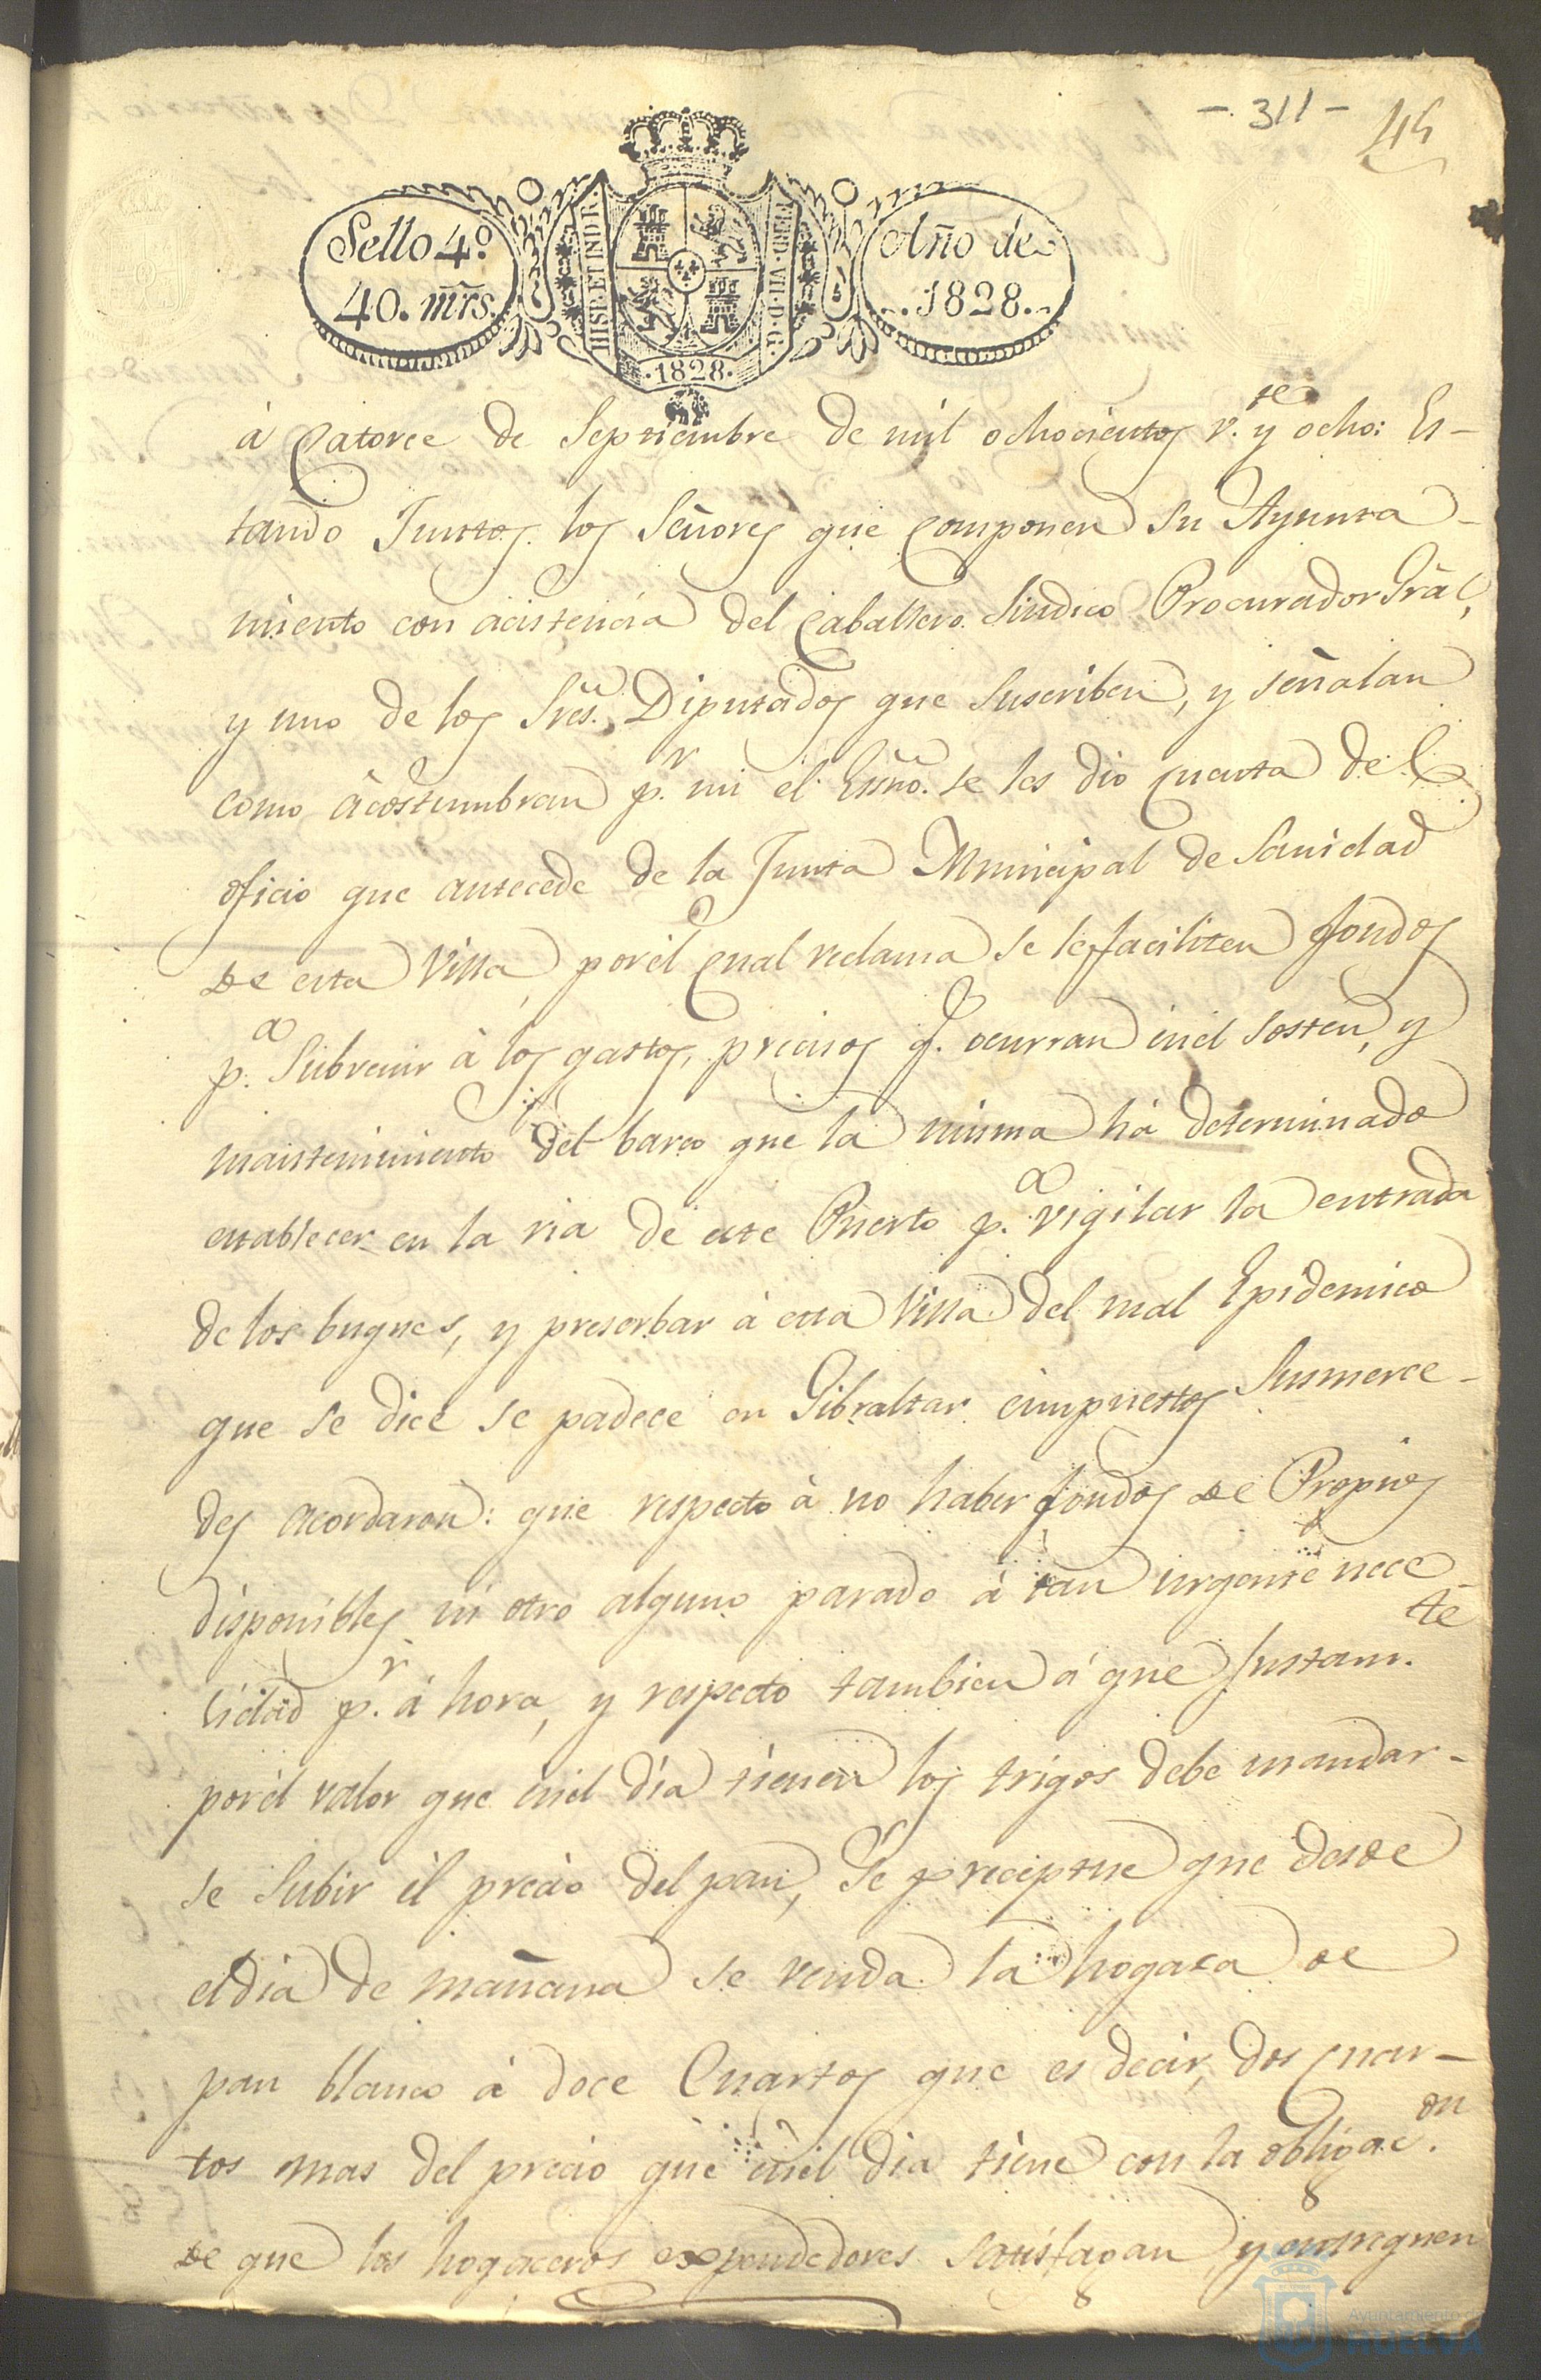 - 311 - 45
Sello 4º
40. mrs.
HISP. ET IND R.
FERD. VII. D. G.
.1828.
Año de
..1828..
à Catorce de Septiembre de mil ochocientos v.te y ocho: Es-
tando Juntos los Señores que componen su Ayunta-
miento con acistencia del Caballero Sindico Procurador Gral,
y uno de los Sres. Diputados que Suscriben, y señalan
como àcostumbran p.r mi el Essno. se les dio cuenta del
oficio que antecede de la Junta Municipal de Sanidad
de esta Villa, por el qual reclama se le faciliten fondos
p.a Subvenir à los gastos precisos q. ocurran en el Sosten, y
maistenimiento del barco que la misma hà determinado
establecer en la ria de este Puerto p.a vigilar la entrada
de los buques, y preserbar à esta Villa del mal Epidemico
que se dice se padece en Gibraltar: eimpuestos Susmerce-
des acordaron: que respecto à no haber fondos de Propios
disponibles ni otro alguno parado à tan urgente nece-
cidad p.r à hora, y respecto tambien à que Justam.te
por el valor que en el dia tienen los trigos debe mandar-
se Subir el precio del pan, Se preceptue que desde
el dia de mañana se venda la hogasa de
pan blanco à doce Cuartos que es decir, dos cuar-
tos mas del precio que en el dia tiene con la obligac.on
de que los hogaceros expendedores satisfagan, y entreguen
Ayuntamiento de
HUELVA